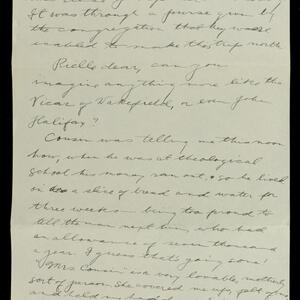 It was through a purse given by
the congregation that they were
enabled to make this trip north
Rielle dear, can you
imagine anything more like the
Vicar of Wakefield, or even John
Halifax?
Cousin was telling me this noon
how, when he was at theological
school his money ran out & so he lived
on a slice of bread and water for
three weeks being too proud to
tell the man next him, who had
an allowance of seven thousand
a year. I guess that's going some
Mrs Cousin is a very lovable, motherly
sort of person. She covered me up
and held my hand